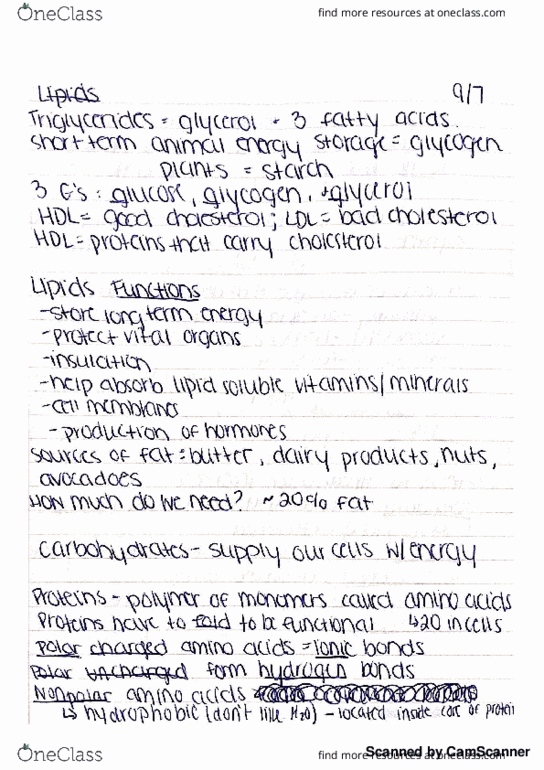 OneClass
find more resources at oneclass.com
Lipids 9/7
Triglycerides = glycerol + 3 fatty acids.
short term animal energy storage = glycogen
plants = starch
3 G's : glucose, glycogen, + glycerol
HDL = good cholesterol; LDL = bad cholesterol
HDL = proteins that carry cholesterol
Lipids Functions
-store long term energy
-protect vital organs
-insulation
-help absorb lipid soluble vitamins/minerals
-cell membranes
-production of hormones
sources of fat : butter, dairy products, nuts,
avocadoes
How much do we need? ~20% fat
carbohydrates - supply our cells w/energy
Proteins - polymer of monomers called amino acids
Proteins have to fold to be functional ↳20 in cells
Polar charged amino acids = ionic bonds
Polar uncharged form hydrogen bonds
Nonpolar amino acids
↳ hydrophobic (don't like H2O) - located inside core of protein
OneClass
find more resources at oneclass.com
Scanned by CamScanner